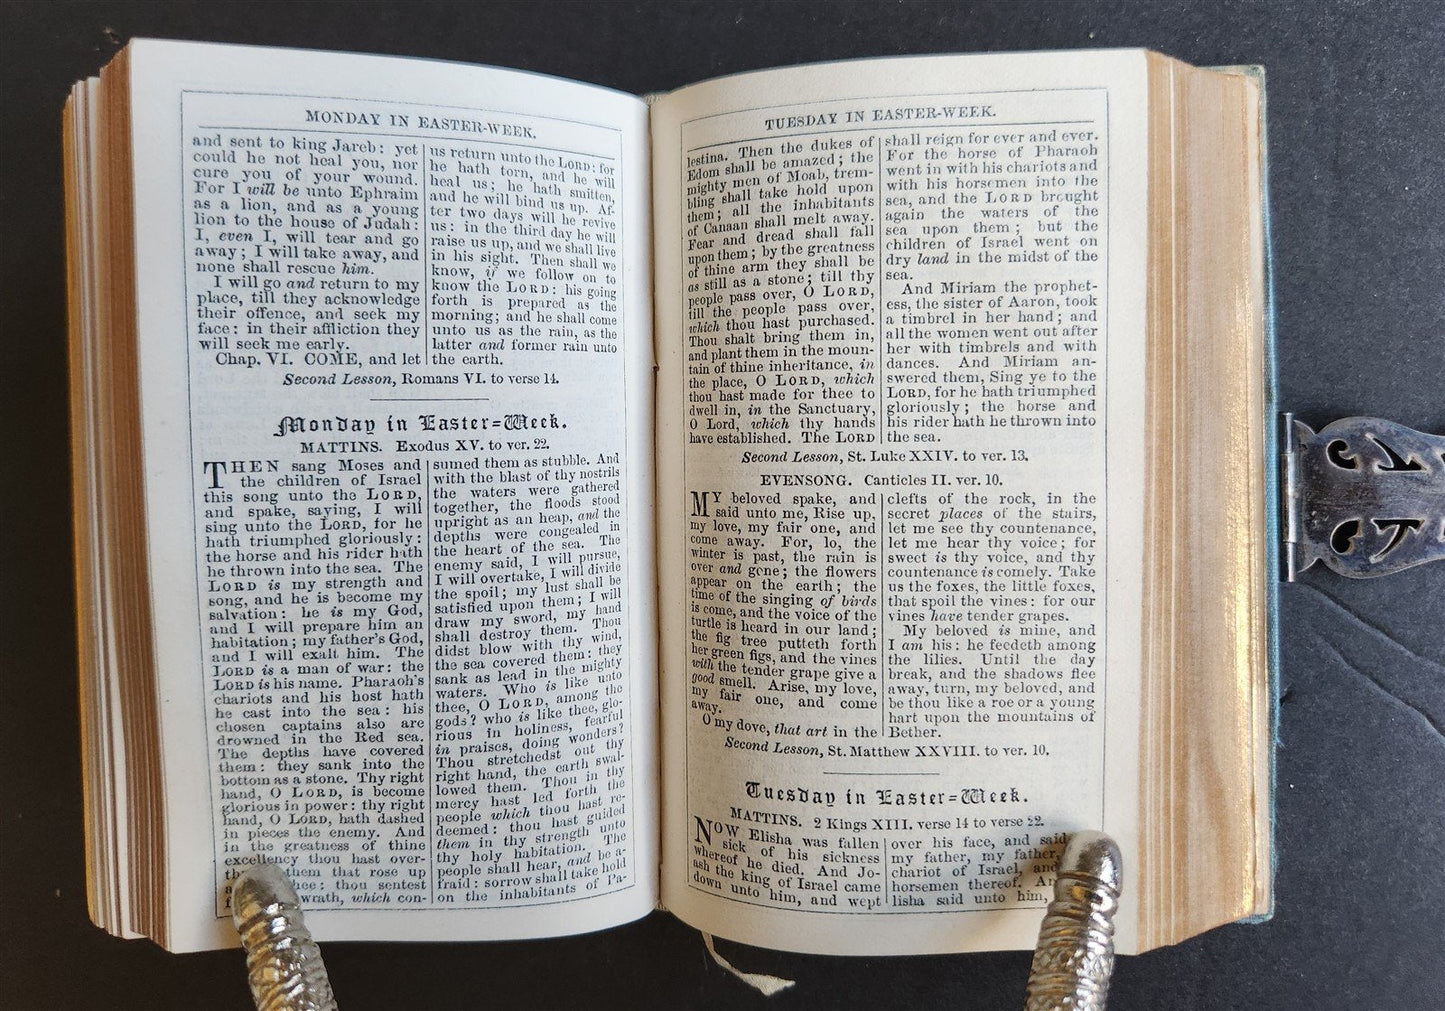 MONDAY IN EASTER-WEEK.
and sent to king Jareb: yet
could he not heal you, nor
cure you of your wound.
For I will be unto Ephraim
as a lion, and as a young
lion to the house of Judah:
I, even I, will tear and go
away; I will take away, and
none shall rescue him.
I will go and return to my
place, till they acknowledge
their offence, and seek my
face: in their affliction they
will seek me early.
Chap. VI. COME, and let
us return unto the LORD: for
he hath torn, and he will
heal us; he hath smitten,
and he will bind us up. Af-
ter two days will he revive
us: in the third day he will
raise us up, and we shall live
in his sight. Then shall we
know, if we follow on to
know the LORD: his going
forth is prepared as the
morning; and he shall come
unto us as the rain, as the
latter and former rain unto
the earth.
Second Lesson, Romans VI. to verse 14.
Monday in Easter=Week.
MATTINS. Exodus XV. to ver. 22.
THEN sang Moses and
the children of Israel
this song unto the LORD,
and spake, saying, I will
sing unto the LORD, for he
hath triumphed gloriously:
the horse and his rider hath
he thrown into the sea. The
LORD is my strength and
song, and he is become my
salvation: he is my God,
and I will prepare him an
habitation; my father's God,
and I will exalt him. The
LORD is a man of war: the
LORD is his name. Pharaoh's
chariots and his host hath
he cast into the sea: his
chosen captains also are
drowned in the Red sea.
The depths have covered
them: they sank into the
bottom as a stone. Thy right
hand, O LORD, is become
glorious in power: thy right
hand, O LORD, hath dashed
in pieces the enemy. And
in the greatness of thine
excellency thou hast over-
them that rose up
thee: thou sentest
wrath, which con-
sumed them as stubble. And
with the blast of thy nostrils
the waters were gathered
together, the floods stood
upright as an heap, and the
depths were congealed in
the heart of the sea. The
enemy said, I will pursue,
I will overtake, I will divide
the spoil; my lust shall be
satisfied upon them; I will
draw my sword, my hand
shall destroy them. Thou
didst blow with thy wind,
the sea covered them: they
sank as lead in the mighty
waters. Who is like unto
thee, O LORD, among the
gods? who is like thee, glo-
rious in holiness, fearful
in praises, doing wonders?
Thou stretchedst out thy
right hand, the earth swal-
lowed them. Thou in thy
mercy hast led forth the
people which thou hast re-
deemed: thou hast guided
them in thy strength unto
thy holy habitation. The
people shall hear, and be a-
fraid: sorrow shall take hold
on the inhabitants of Pa-
TUESDAY IN EASTER-WEEK.
lestina. Then the dukes of
Edom shall be amazed; the
mighty men of Moab, trem-
bling shall take hold upon
them; all the inhabitants
of Canaan shall melt away.
Fear and dread shall fall
upon them; by the greatness
of thine arm they shall be
as still as a stone; till thy
people pass over, O LORD,
till the people pass over,
which thou hast purchased.
Thou shalt bring them in,
and plant them in the moun-
tain of thine inheritance, in
the place, O LORD, which
thou hast made for thee to
dwell in, in the Sanctuary,
O Lord, which thy hands
have established. The LORD
shall reign for ever and ever.
For the horse of Pharaoh
went in with his chariots and
with his horsemen into the
sea, and the LORD brought
again the waters of the
sea upon them; but the
children of Israel went on
dry land in the midst of the
sea.
And Miriam the prophet-
ess, the sister of Aaron, took
a timbrel in her hand; and
all the women went out after
her with timbrels and with
dances. And Miriam an-
swered them, Sing ye to the
LORD, for he hath triumphed
gloriously; the horse and
his rider hath he thrown into
the sea.
Second Lesson, St. Luke XXIV. to ver. 13.
EVENSONG. Canticles II. ver. 10.
MY beloved spake, and
said unto me, Rise up,
my love, my fair one, and
come away. For, lo, the
winter is past, the rain is
over and gone; the flowers
appear on the earth; the
time of the singing of birds
is come, and the voice of the
turtle is heard in our land;
the fig tree putteth forth
her green figs, and the vines
with the tender grape give a
good smell. Arise, my love,
my fair one, and come
away.
O my dove, that art in the
clefts of the rock, in the
secret places of the stairs,
let me see thy countenance,
let me hear thy voice; for
sweet is thy voice, and thy
countenance is comely. Take
us the foxes, the little foxes,
that spoil the vines: for our
vines have tender grapes.
My beloved is mine, and
I am his: he feedeth among
the lilies. Until the day
break, and the shadows flee
away, turn, my beloved, and
be thou like a roe or a young
hart upon the mountains of
Bether.
Second Lesson, St. Matthew XXVIII. to ver. 10.
Tuesday in Easter=Week.
MATTINS. 2 Kings XIII. verse 14 to verse 22.
NOW Elisha was fallen
sick of his sickness
whereof he died. And Jo-
ash the king of Israel came
down unto him, and wept
over his face, and said
my father, my father,
chariot of Israel, and
horsemen thereof.
lisha said unto him,